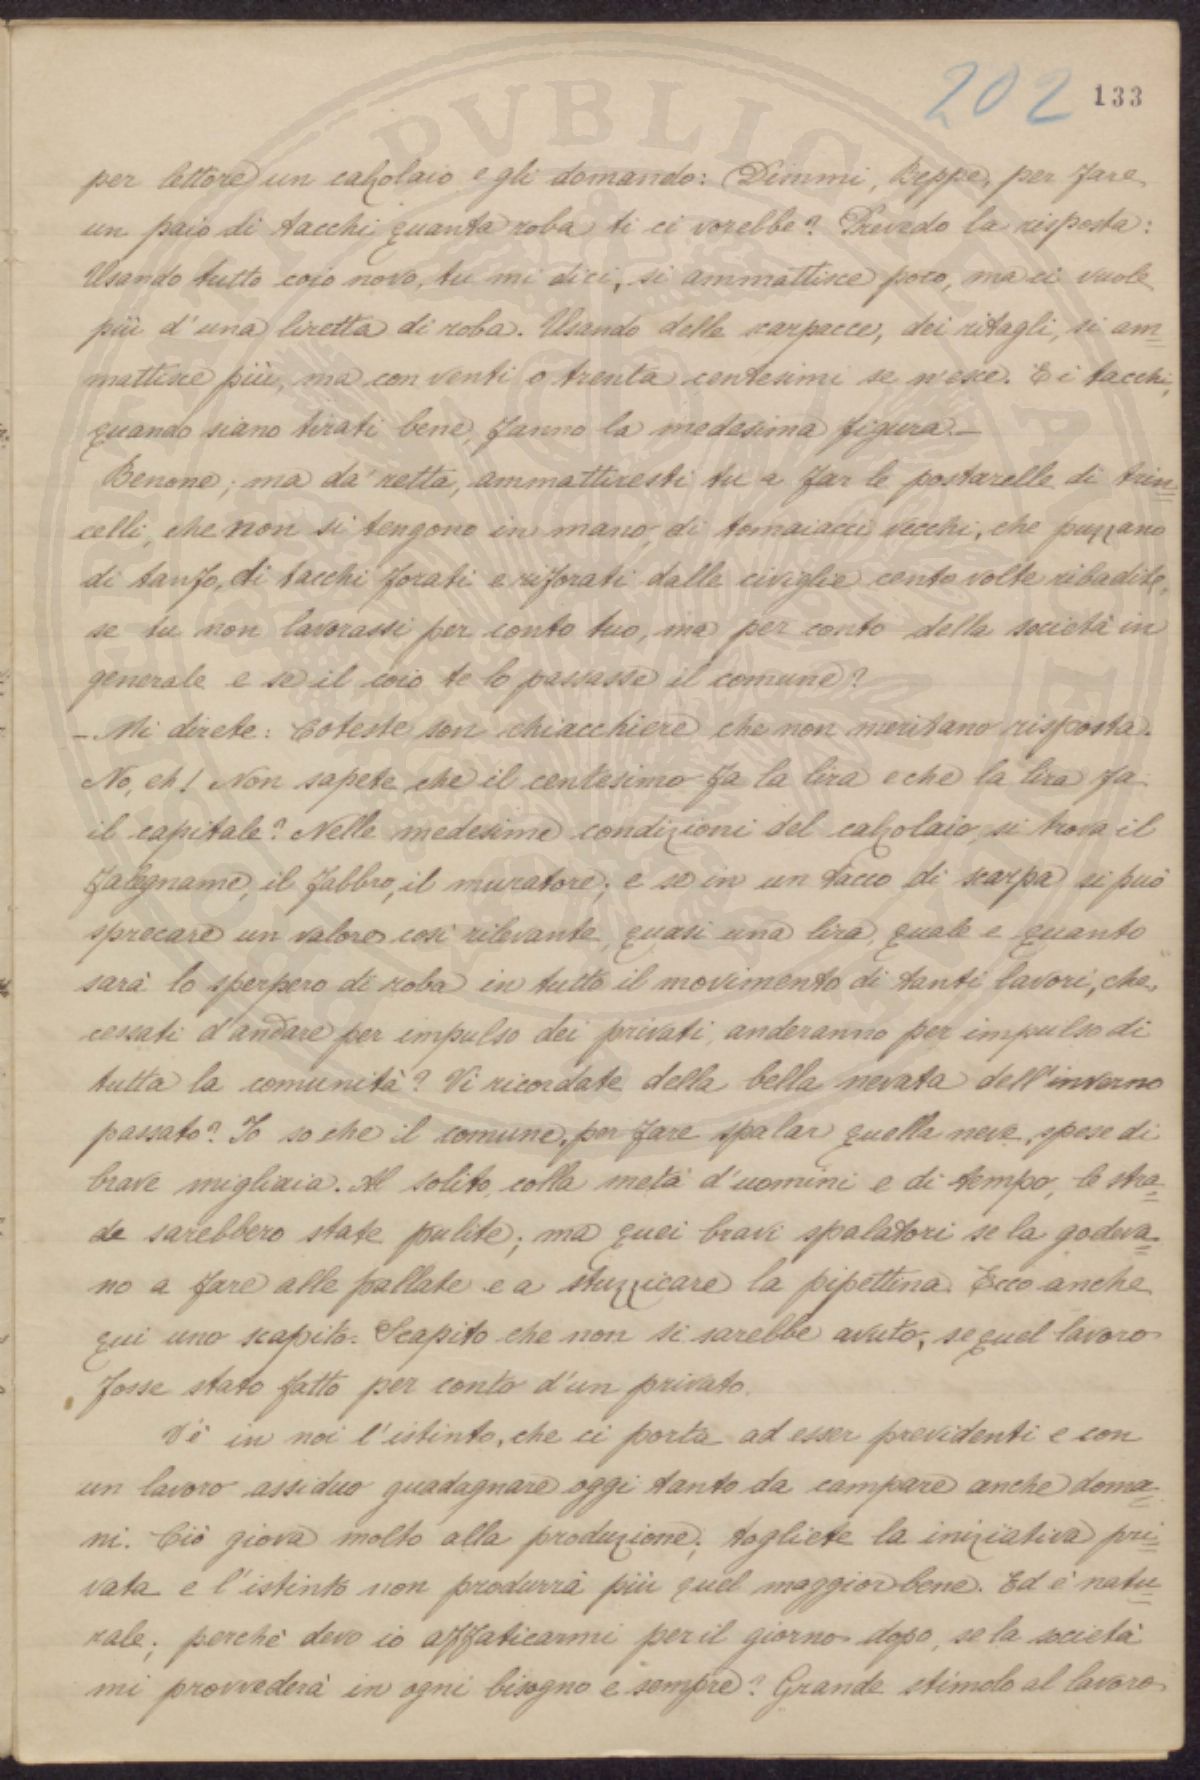 202 133
per lettore un calzolaio e gli domando: Dimmi, Beppe, per fare
un paio di tacchi quanta roba ti ci vorebbe? Prevedo la risposta:
Usando tutto coio novo, tu mi dici, si ammattisce poco, ma ci vuole
più d'una liretta di roba. Usando delle scarpacce, dei ritagli, si am=
mattisce più, ma con venti o trenta centesimi se n'esce. E i tacchi,
quando siano tirati bene, fanno la medesima figura._
Benone; ma da' retta, ammattiresti tu a far le postarelle di trin=
celli, che non si tengono in mano, di tomaiacci vecchi, che puzzano
di tanfo, di tacchi forati e riforati dalle civiglie cento volte ribadite,
se tu non lavorassi per conto tuo, ma per conto della società in
generale e se il coio te lo passasse il comune?
_ Mi direte: Coteste son chiacchiere che non meritano risposta.
No, eh! Non sapete che il centesimo fa la lira e che la lira fa
il capitale? Nelle medesime condizioni del calzolaio, si trova il
falegname, il fabbro, il muratore; e se in un tacco di scarpa si può
sprecare un valore così rilevante, quasi una lira, quale e quanto
sarà lo sperpero di roba in tutto il movimento di tanti lavori, che,
cessati d'andare per impulso dei privati, anderanno per impulso di
tutta la comunità? Vi ricordate della bella nevata dell'inverno
passato? Io so che il comune, per fare spalar quella neve, spese di
brave migliaia. Al solito, colla metà d'uomini e di tempo, le stra=
de sarebbero state pulite; ma quei bravi spalatori se la godeva=
no a fare alle pallate e a stuzzicare la pipettina. Ecco anche
qui uno scapito. Scapito che non si sarebbe avuto, se quel lavoro
fosse stato fatto per conto d'un privato.
V'è in noi l'istinto, che ci porta ad esser previdenti e con
un lavoro assiduo guadagnare oggi tanto da campare anche doma=
ni. Ciò giova molto alla produzione; togliete la iniziativa pri=
vata e l'istinto non produrrà più quel maggior bene. Ed è natu=
rale; perchè devo io affaticarmi per il giorno dopo, se la società
mi provvederà in ogni bisogno e sempre? Grande stimolo al lavoro